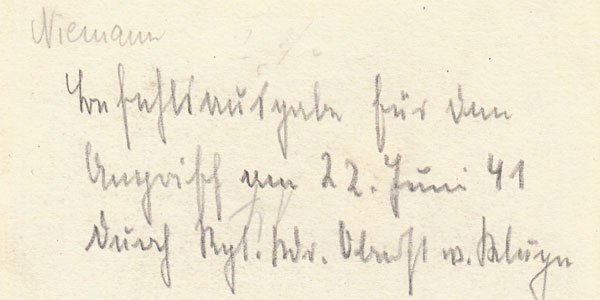 Niemann
Befehlsausgabe für den
Angriff am 22. Juni 41
durch Rgt. Kdr. Oberst v. Kluge